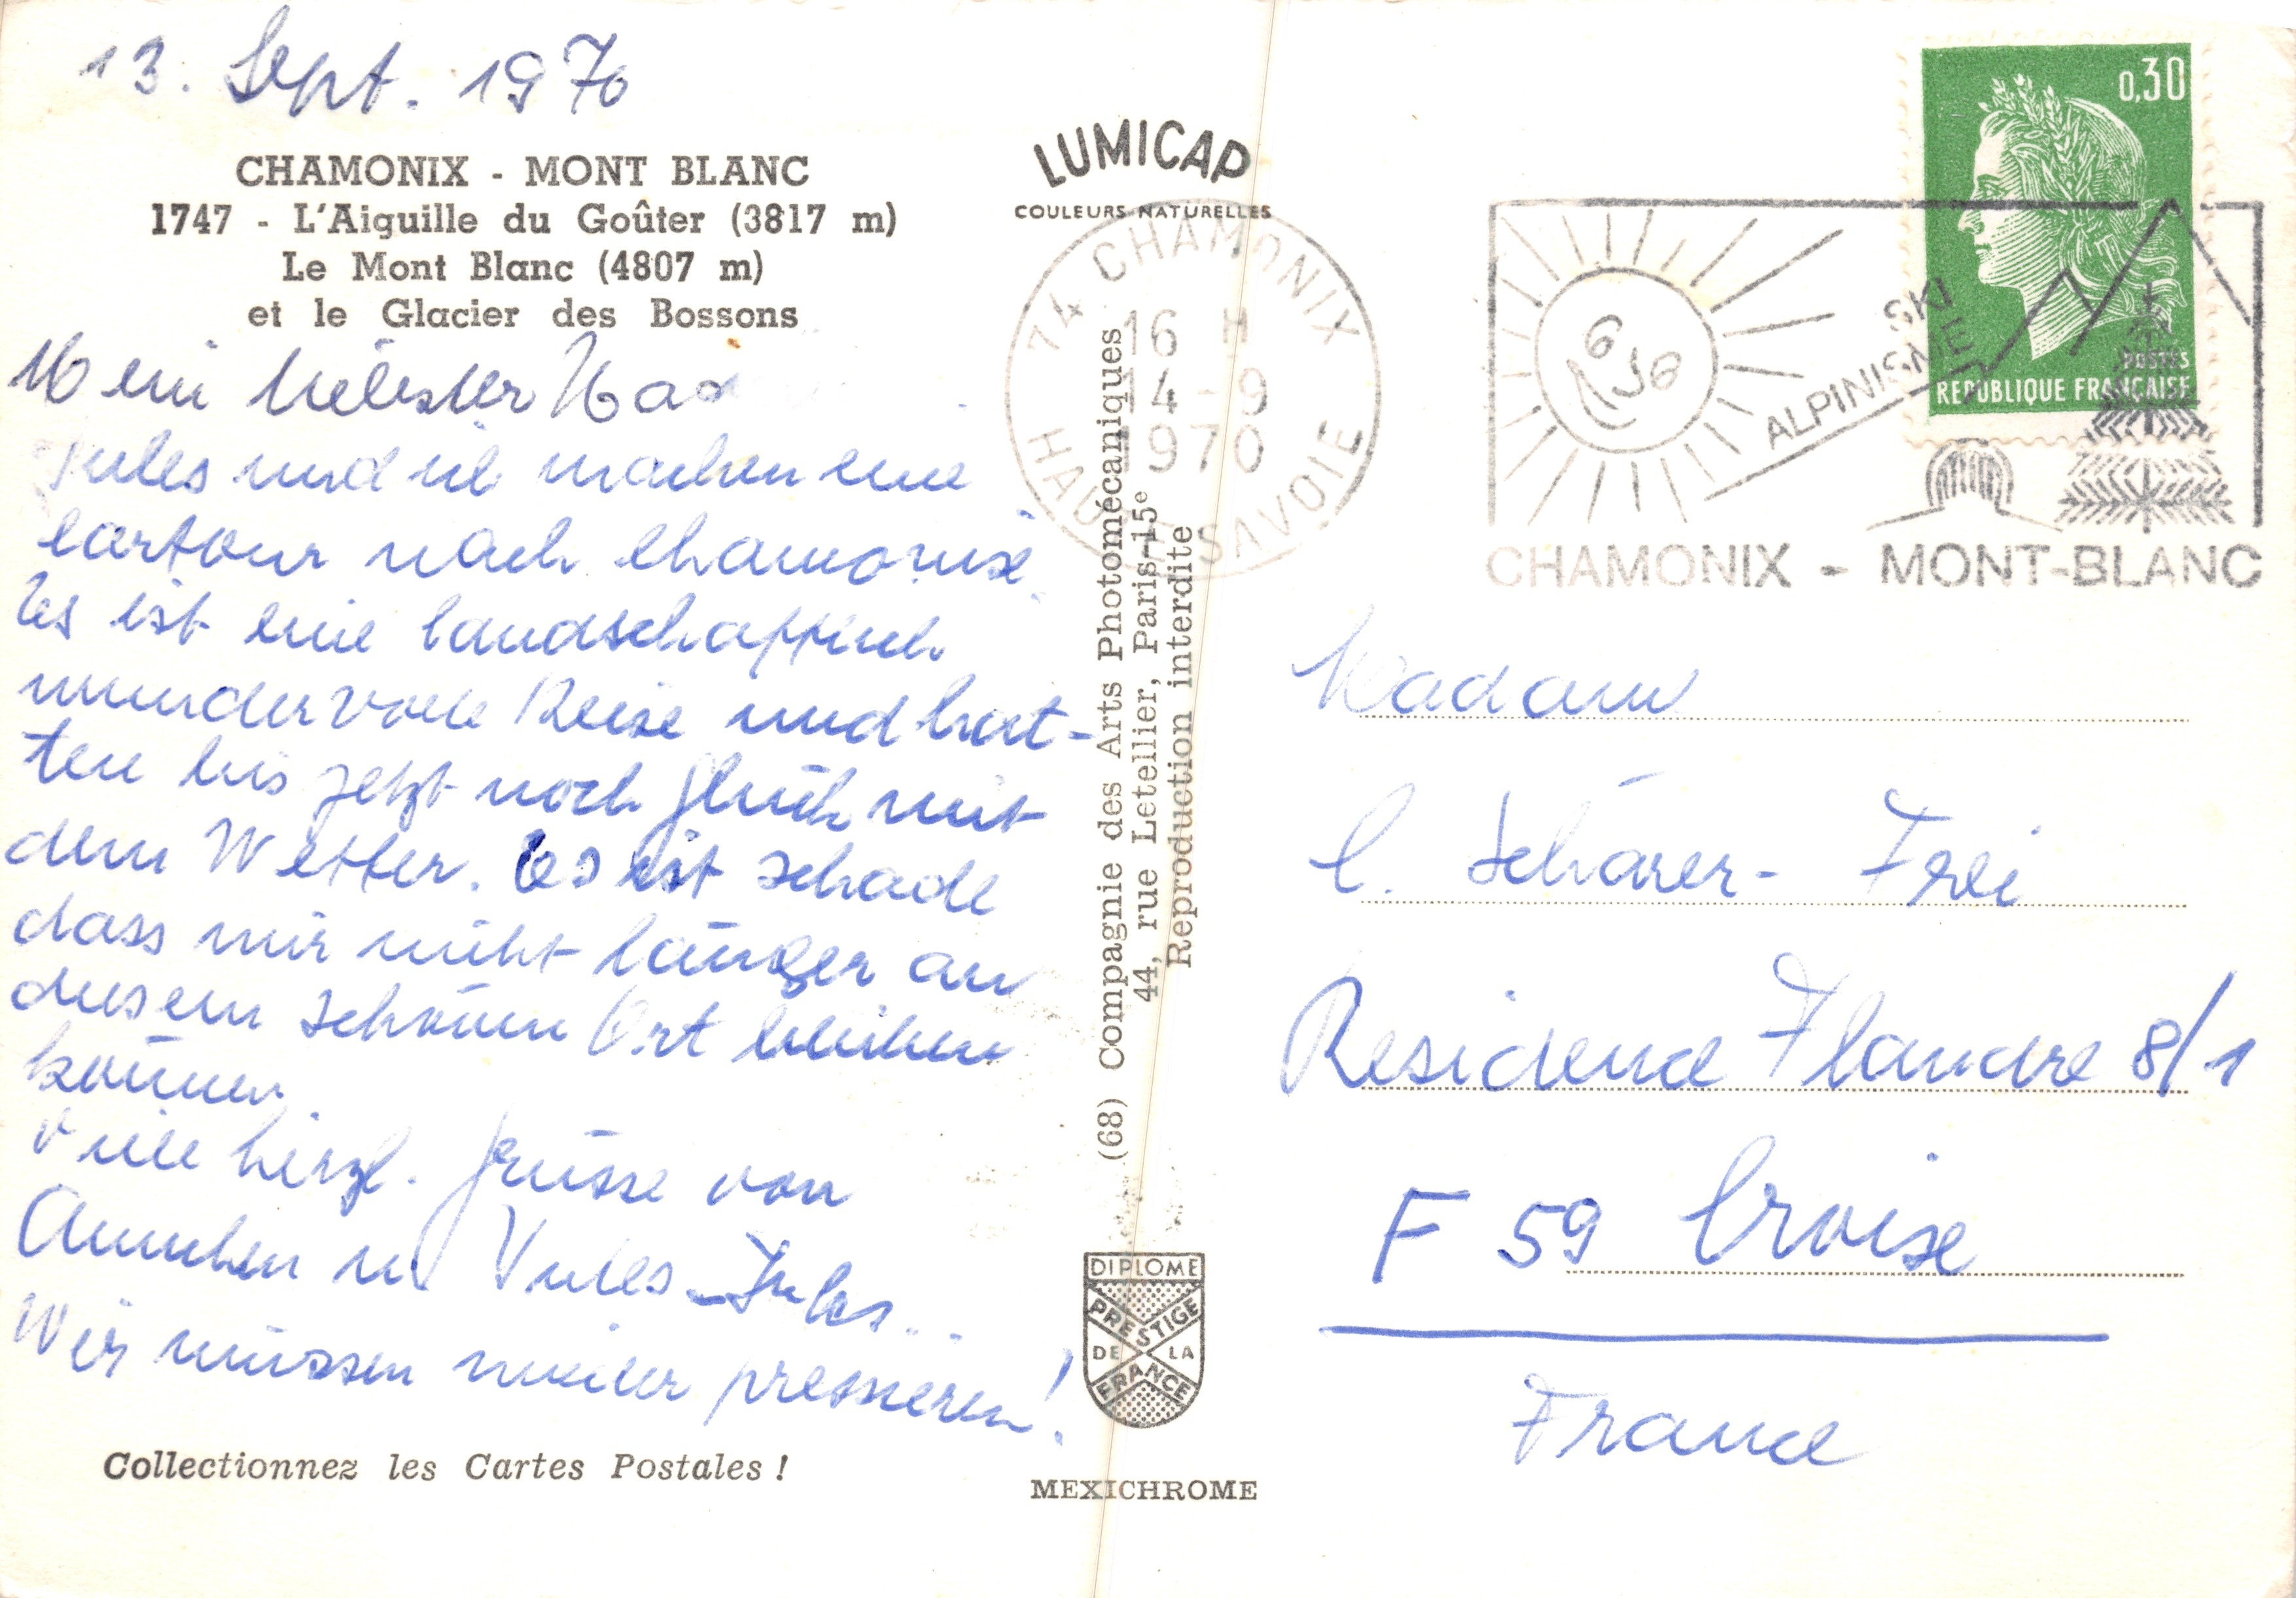 13. Sept. 1970
CHAMONIX - MONT BLANC
1747 - L'Aiguille du Goûter (3817 m)
Le Mont Blanc (4807 m)
et le Glacier des Bossons
Mein liebster
Jules und ich machen eine
Cartour nach Chamonix
Es ist eine landschaftlich
wundervolle Reise und hat-
ten bis jetzt noch Glück mit
dem Wetter. Es ist schade
dass wir nicht länger an
diesem schönen Ort bleiben
können.
Viele herzl. Grüsse von
Annchen u Jules
Wir müssen wieder pressieren!
Collectionnez les Cartes Postales !
LUMICAP
COULEURS NATURELLES
(68) Compagnie des Arts Photomécaniques
44, rue Letellier, Paris-15e
Reproduction interdite
DIPLOME
PRESTIGE
DE LA
FRANCE
MEXICHROME
74 CHAMONIX
16 H
14-9
1970
HAUTE SAVOIE
SKI
ALPINISME
CHAMONIX - MONT-BLANC
0,30
POSTES
REPUBLIQUE FRANÇAISE
Madam
C. Schärer-Frei
Residence Flandre 8/1
F 59 Croix
France